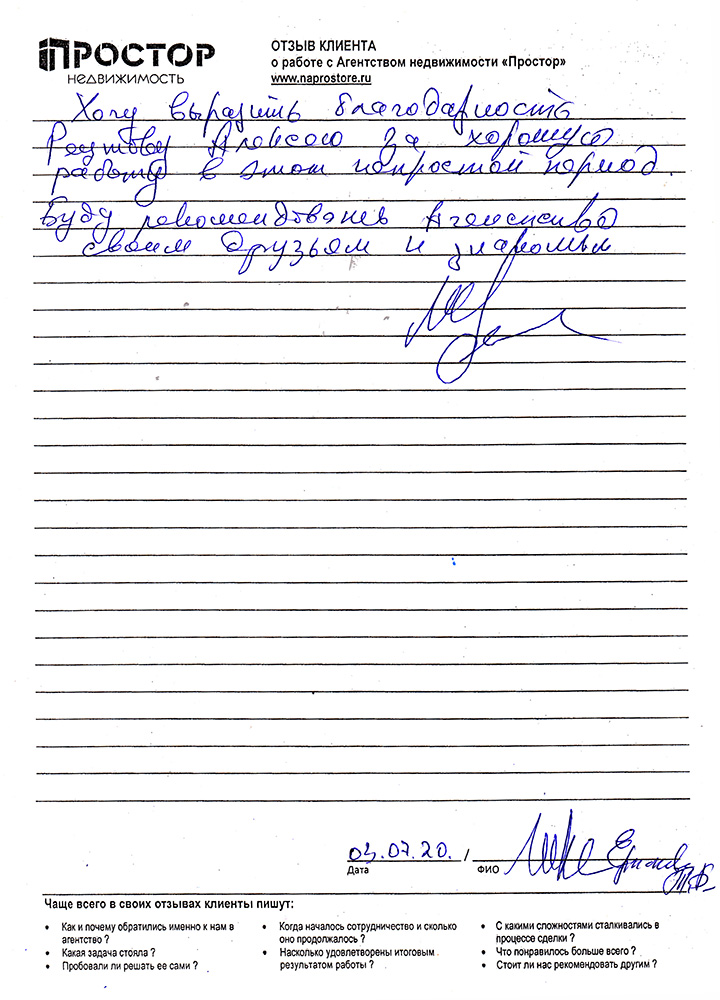 ПРОСТОР
НЕДВИЖИМОСТЬ
ОТЗЫВ КЛИЕНТА
о работе с Агентством недвижимости «Простор»
www.naprostore.ru
Хочу выразить благодарность
Реутову Алексею за хорошую
работу в этот непростой период.
Буду рекомендовать Агентство
своим друзьям и знакомым
03.07.20. /
Дата
ФИО
Чаще всего в своих отзывах клиенты пишут:
• Как и почему обратились именно к нам в агентство ?
• Какая задача стояла ?
• Пробовали ли решать ее сами ?
• Когда началось сотрудничество и сколько оно продолжалось ?
• Насколько удовлетворены итоговым результатом работы ?
• С какими сложностями сталкивались в процессе сделки ?
• Что понравилось больше всего ?
• Стоит ли нас рекомендовать другим ?